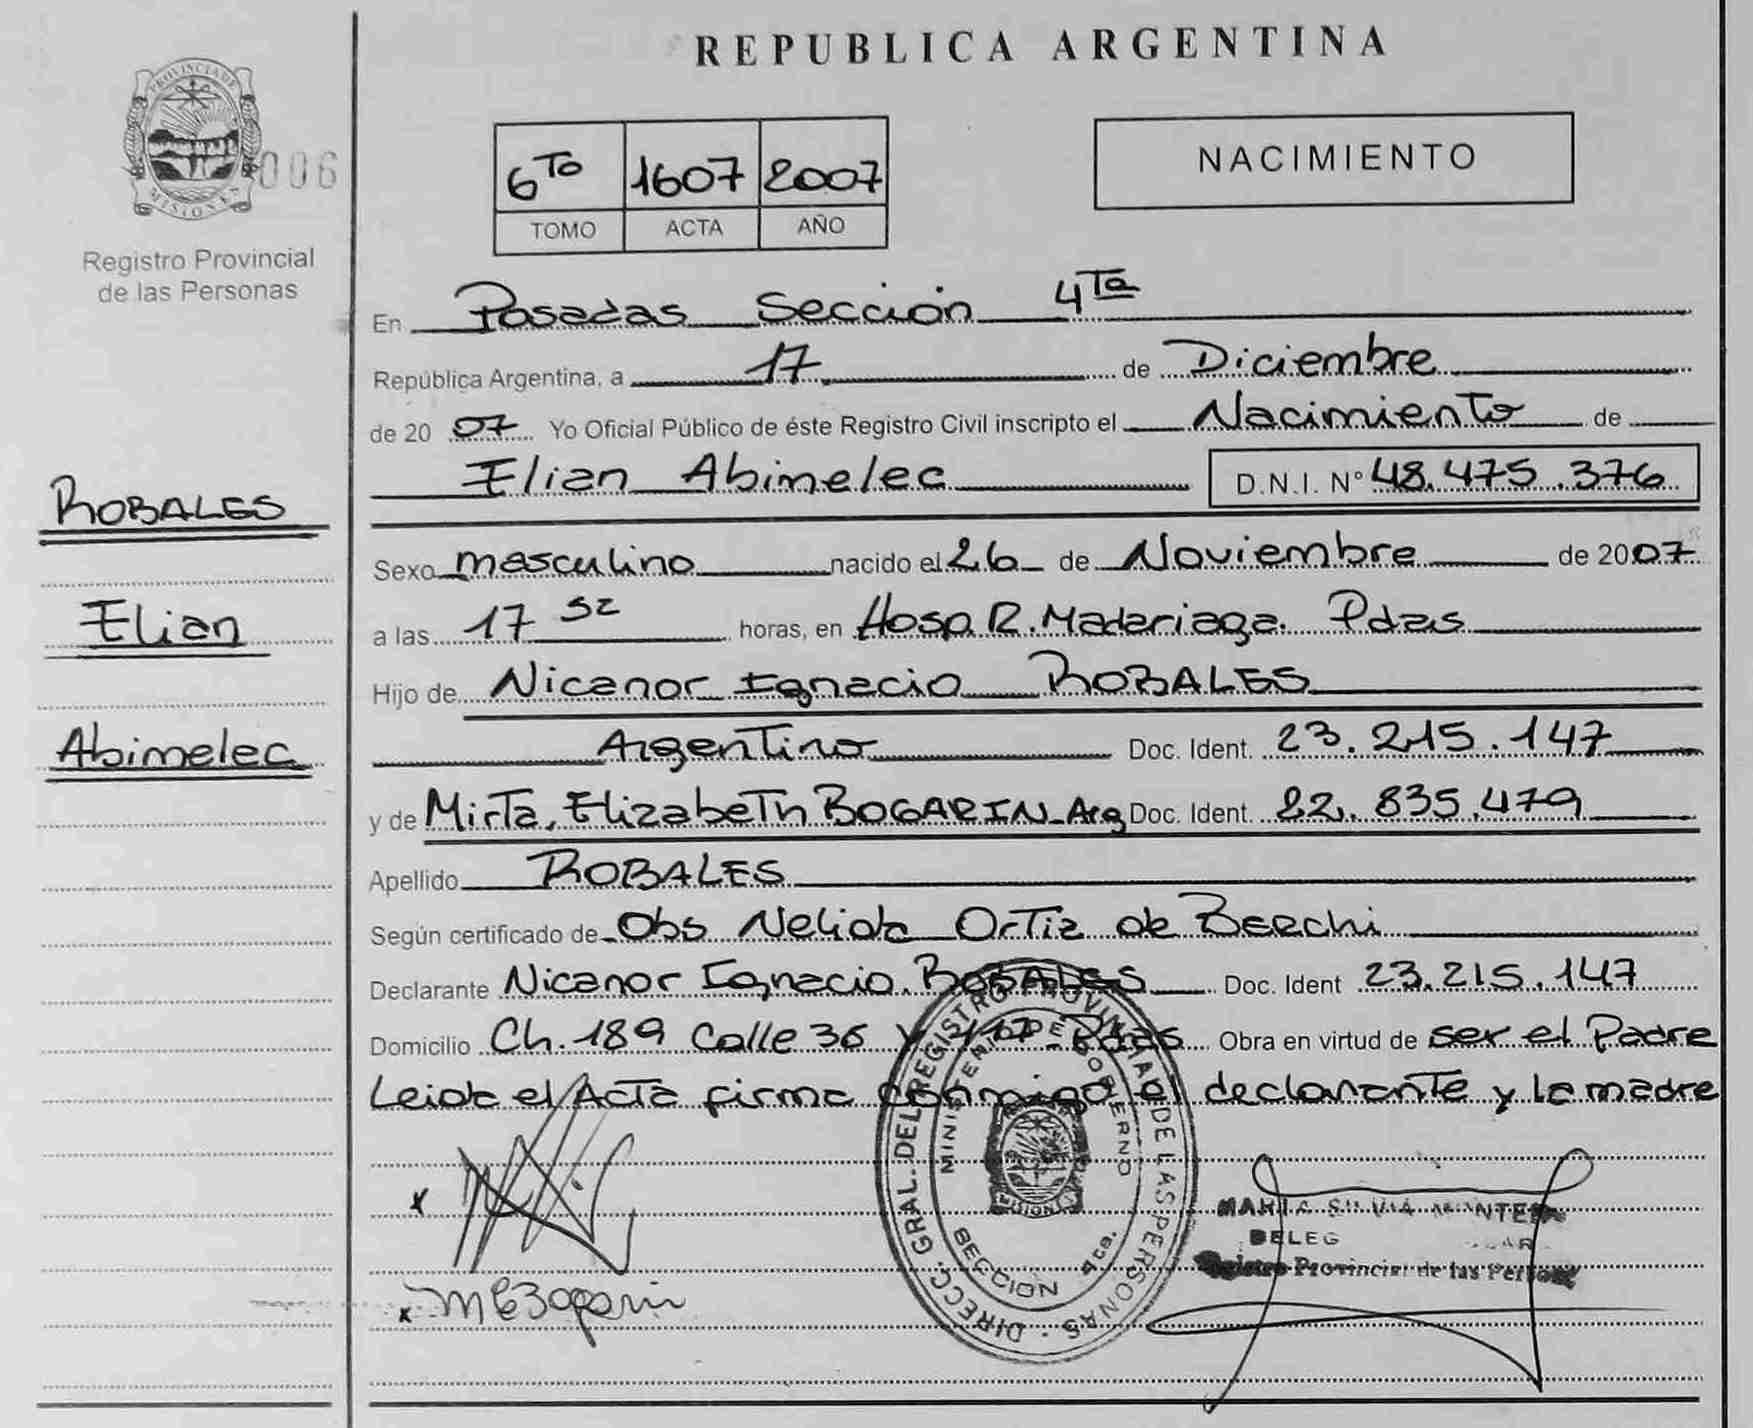 REPUBLICA ARGENTINA
PROVINCIA DE
MISIONES
006
Registro Provincial
de las Personas
6To 1607 2007
TOMO ACTA AÑO
NACIMIENTO
En Posadas Sección 4Ta
República Argentina, a 17 de Diciembre
de 20 07 Yo Oficial Público de éste Registro Civil inscripto el Nacimiento de
Elian Abimelec D.N.I. N° 48.475.376
ROBALES
Elian
Abimelec
Sexo masculino nacido el 26 de Noviembre de 2007
a las 17 52 horas, en Hosp. R. Madariaga. Pdas
Hijo de Nicanor Ignacio ROBALES
Argentino Doc. Ident. 23.215.147
y de Mirta, Elizabeth BOGARIN_Arg Doc. Ident. 22.835.479
Apellido ROBALES
Según certificado de Obs Nelida Ortiz de Berchi
Declarante Nicanor Ignacio. ROBALES Doc. Ident 23.215.147
Domicilio Ch. 189 Calle 36 y Pdas Obra en virtud de ser el Padre
Leida el Acta firma conmigo el declarante y la madre
DIRECC. GRAL. DEL REGISTRO PROVINCIAL DE LAS PERSONAS
MINISTERIO DE GOBIERNO
SECCION 4ta.
x
x MEBogarin
MARIA SILVIA
DELEG
Registro Provincial de las Personas